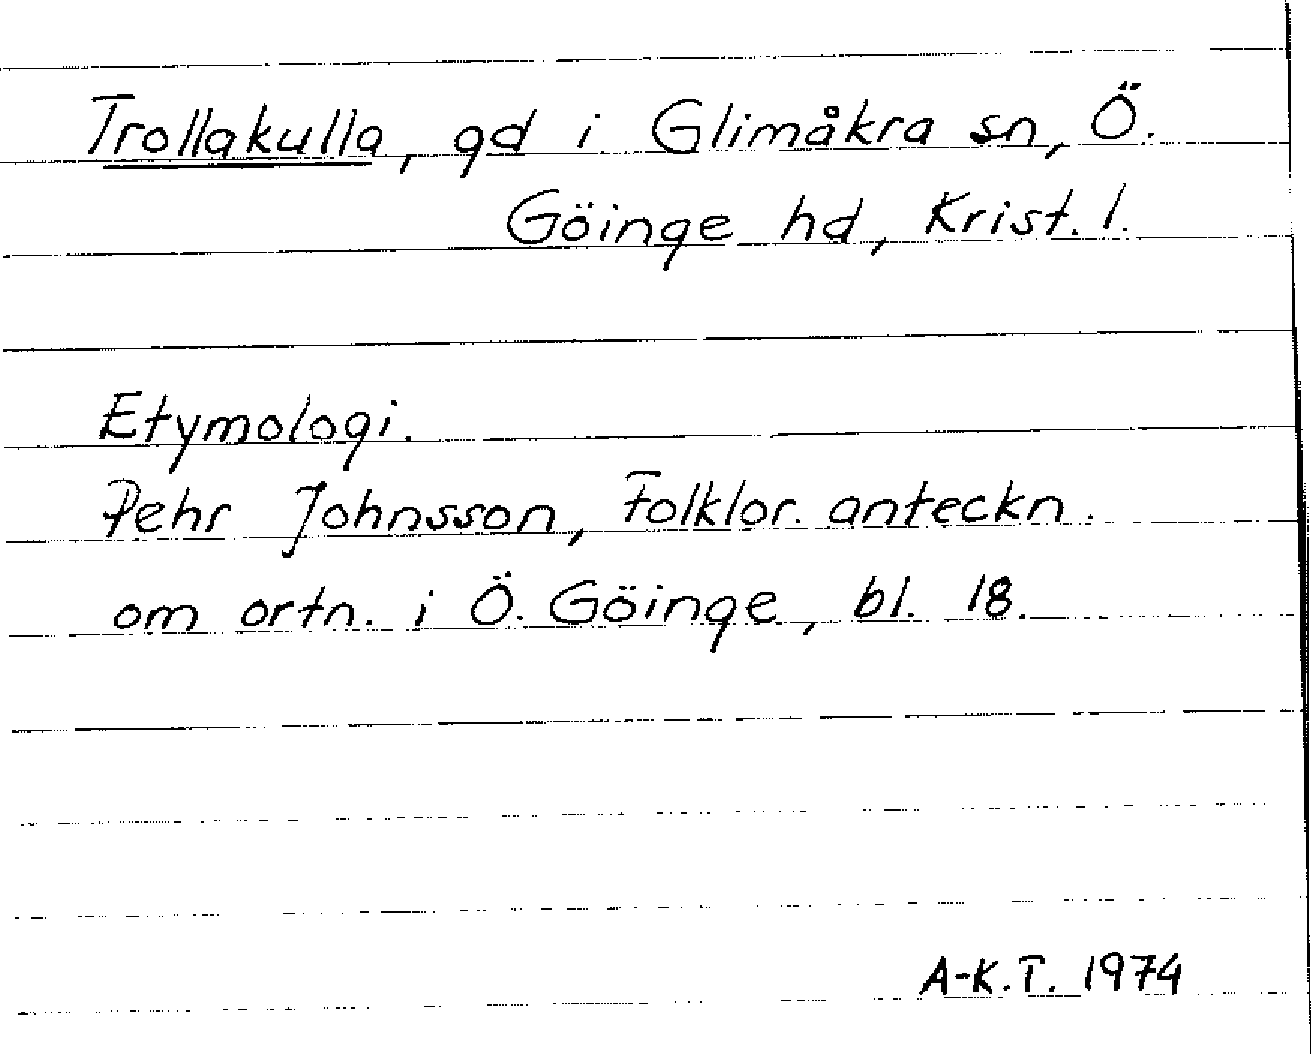 Trollakulla, gd i Glimåkra sn, Ö.
Göinge hd, Krist. l.
Etymologi.
Pehr Johnsson, Folklor. anteckn.
om ortn. i Ö. Göinge, bl. 18.
A-K.T. 1974